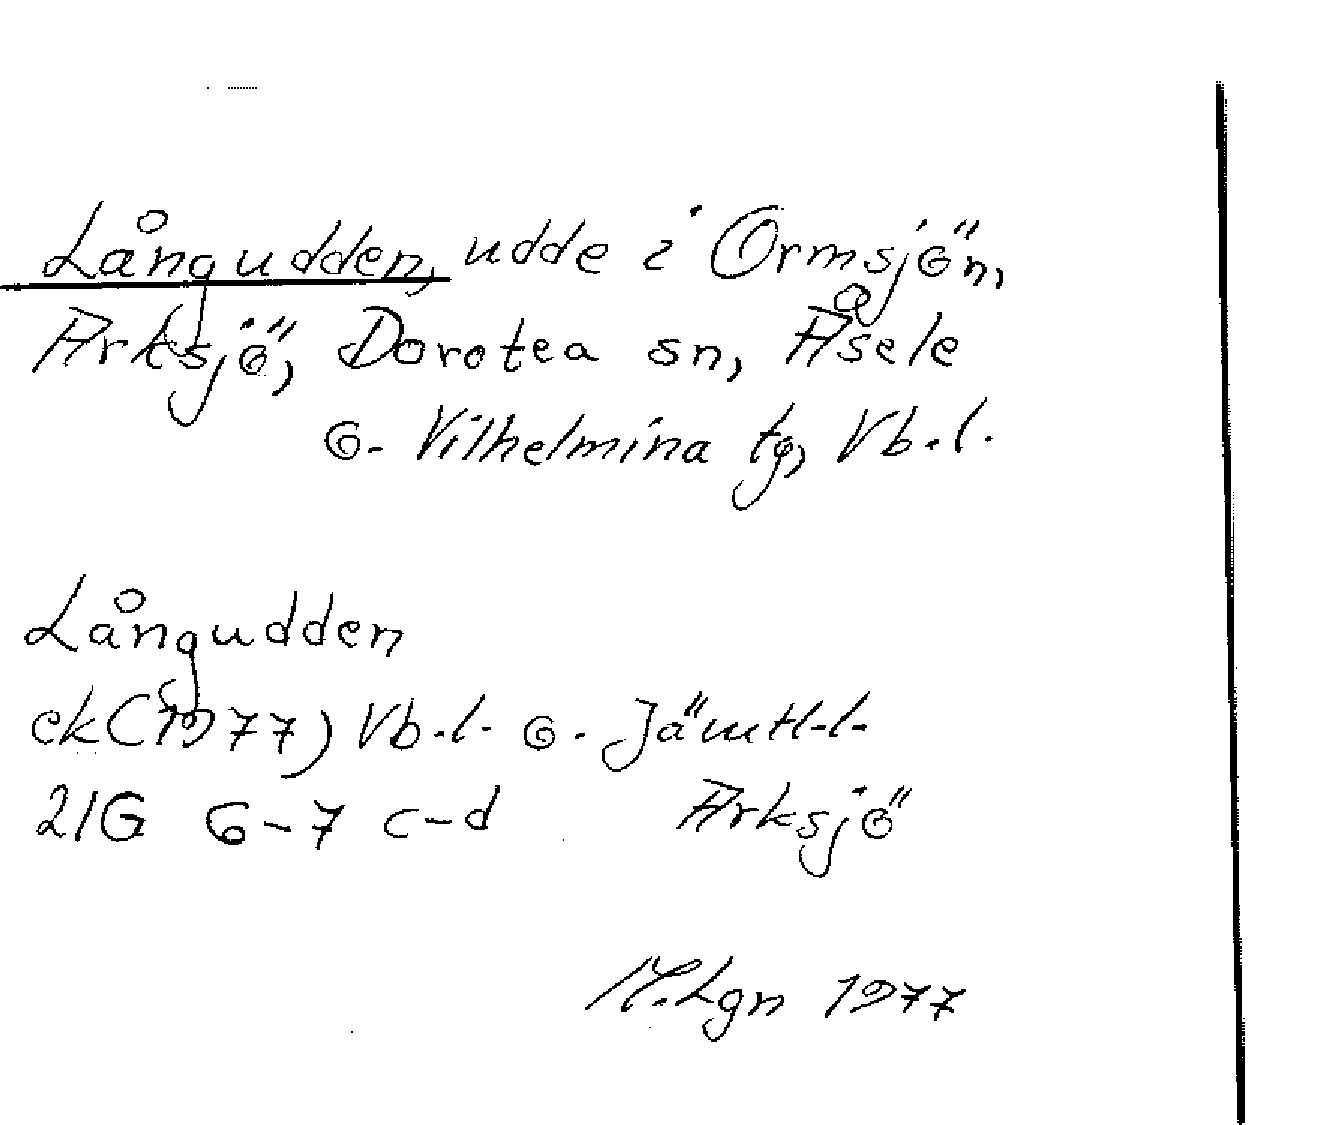 Långudden, udde i Ormsjön,
Arksjö, Dorotea sn, Åsele
o. Vilhelmina tg, Vb.l.
Långudden
ek (1977) Vb.l. o. Jämtl.l.
21G 6-7 c-d Arksjö
M.Lgn 1977